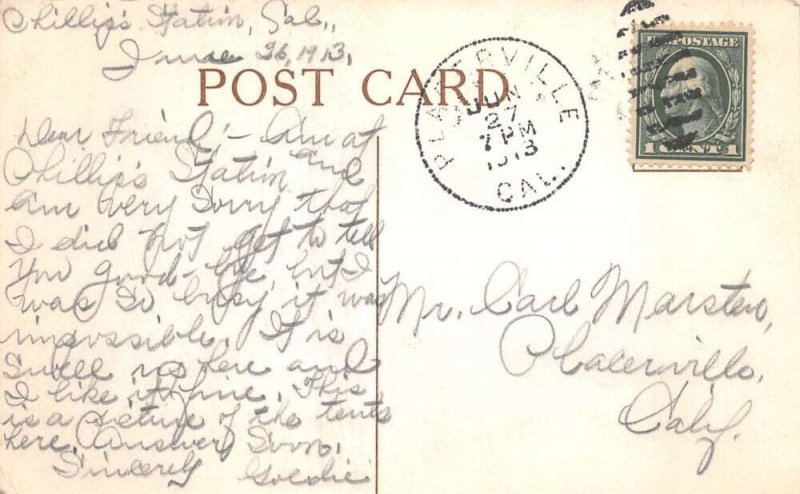 Phillips Station, Cal.,
June 26, 1913,
POST CARD
PLACERVILLE
JUN
27
7 PM
1913
CAL.
U.S. POSTAGE
1 CENT 1
Dear Friend:- Am at
Phillips Station and
am very sorry that
I did not get to tell
you good-bye, but I
was so busy it was
impossible. It is
swell up here and
I like it fine. This
is a picture of the tents
here. Answer soon,
Sincerely Goldie
Mr. Carl Marsten,
Placerville,
Calif.